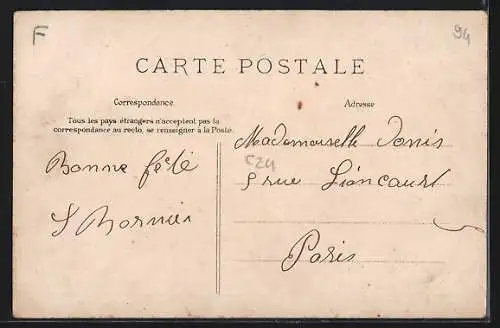 F
94
CARTE POSTALE
Correspondance
Adresse
Tous les pays étrangers n'acceptent pas la
correspondance au recto, se renseigner à la Poste.
Mademoiselle Denis
Bonne fêté
C24
5 rue Liancourt
Paris